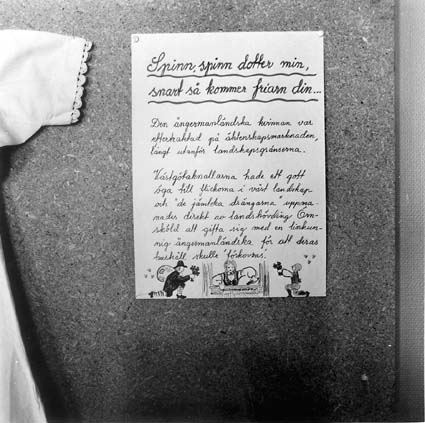 Spinn, spinn dotter min,
snart så kommer friarn din...
Den ångermanländska kvinnan var
eftertraktad på äktenskapsmarknaden,
långt utanför landskapsgränserna.
Västgötaknallarna hade ett gott
öga till flickorna i vårt landskap
och "de jämtska drängarna" uppma-
nades direkt av landshövding Örn-
sköld att gifta sig med en linkun-
nig ångermanländska för att deras
hushåll skulle "förkovras".